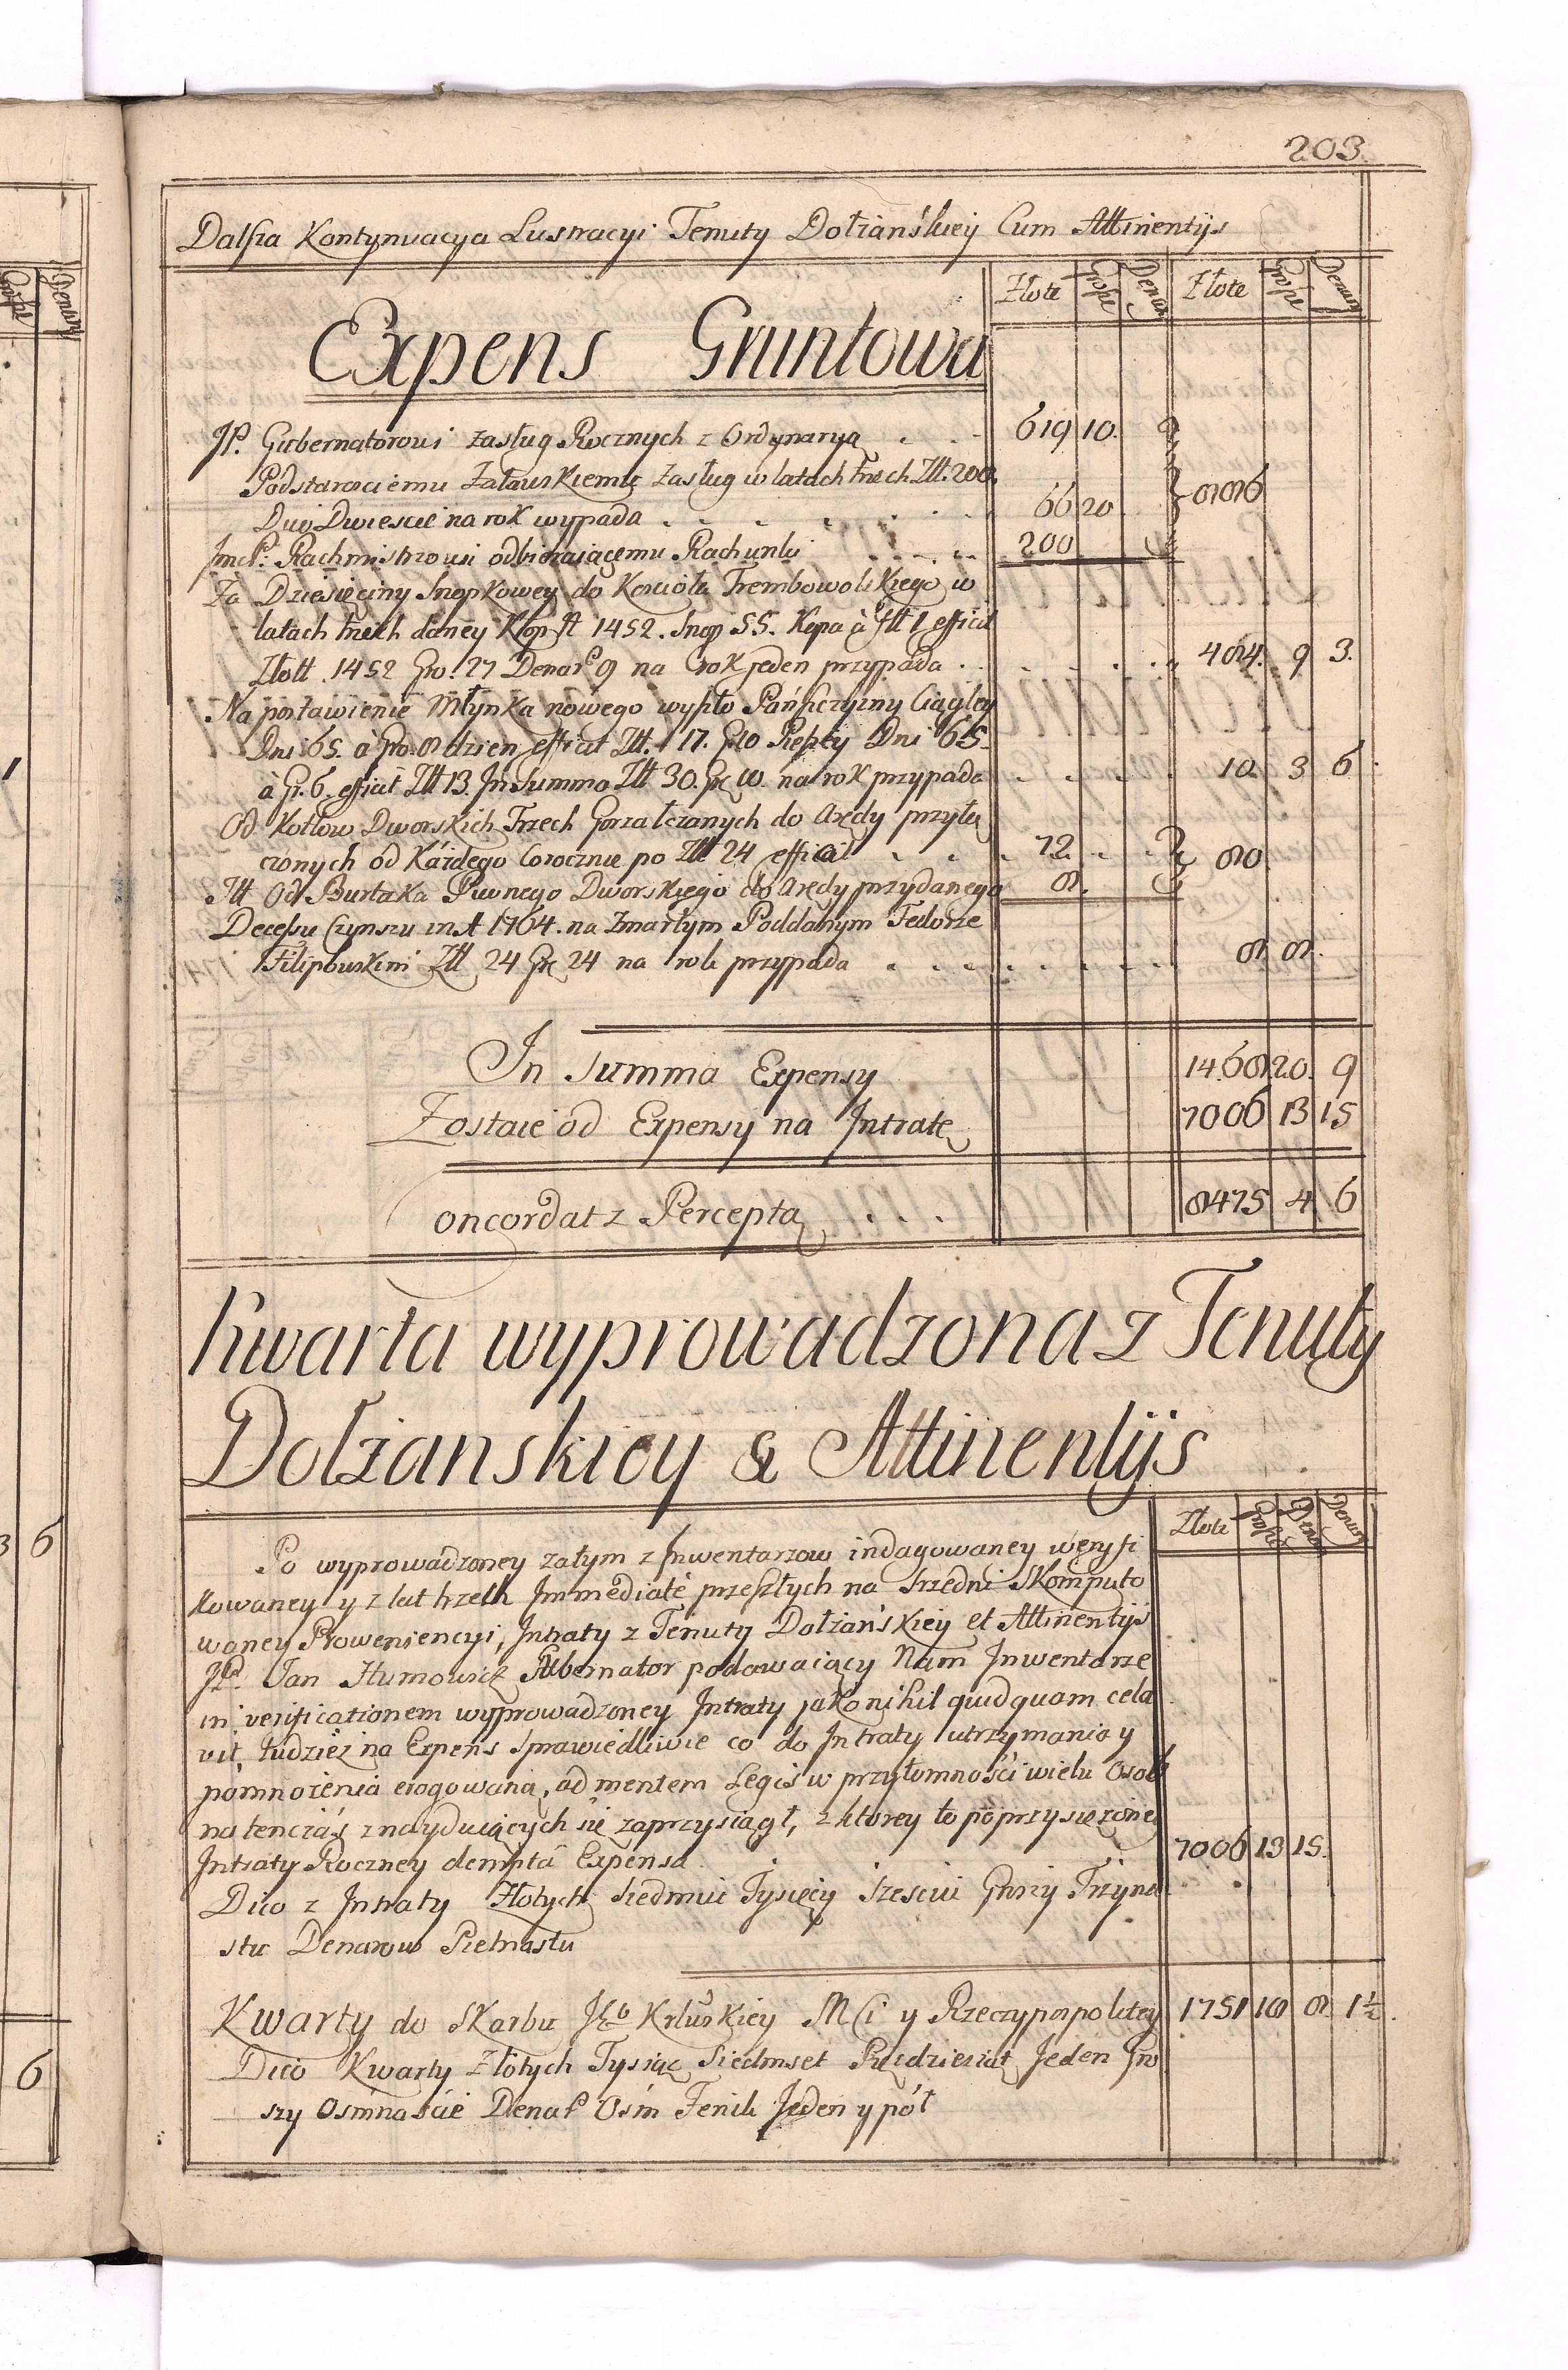 203.
Dalsza Kontynuacya Lustracyi Tenuty Dołżańskiey Cum Attinentijs
Złote Grosze Denar Złote Grosze Denar
Expens Gruntowa
JP. Gubernatorowi zasług Rocznych z Ordynaryą . . . 619 10.
Podstarosciemu Załauskiemu zasług w latach trzech Złt. 200.
Duo Dwiescie na rok wypada . . . . . 66 20 886
JmćP. Rachmistrzowi odbieraiącemu Rachunki . . . . 200
Za Dziesięciny Snopkowey do Kościoła Trembowolskiego w
latach trzech daney Kop ~ 1452. Snop 55. Kopa à Złt 1 efficit
Złott. 1452 Gro. 27 Denar 9 na rok jeden przypada . . . . . 484. 9 3.
Na postawienie Młynka nowego wyszło Pańszczyzny Ciągley
Dni 65. à Gro. 8 dzien efficit Złt. 17. G. 10 Pieszey Dni 65.
à Gr. 6. efficit Złt 13. In Summa Złt 30. Gr 10. na rok przypada . . . . 10 3 6.
Od Kotłow Dworskich Trzech Gorzałczanych do Arędy przyłą
czonych od Każdego Corocznie po Złt 24 efficit . . . 72. . . 80.
Itt Od Burtaka Piwnego Dworskiego do Arędy przydanego 8.
Decessu Czynszu in A 1764. na Zmarłym Poddanym Fedorze
Filipouskim Złt 24 Gr 24 na rok przypada . . . . . . . 8 8.
In Summa Expensy 1468 20. 9
Zostaie od Expensy na Intratę 7006 13 15
Concordat z Perceptą . . . 8475 4 6
Kwarta wyprowadzona z Tenuty
Dołżanskiey & Attinentijs
Złote Grosze Denar Denar
Po wyprowadzoney zatym z Inwentarzow indagowaney weryfi
kowaney y z lat trzech Immediatè przeszłych na srzedni skomputo
waney Proweniencyi, Intraty z Tenuty Dołżańskiey et Attinentijs
JP. Jan Humowicz Gubernator podawaiący Nam Inwentarze
in verificationem wyprowadzoney Intraty jako nihil quidquam cela
vit, tudzież na Expens sprawiedliwie co do Intraty utrzymania y
pomnożenia erogowaną, ad mentem Legis w przytomności wielu Osob
natenczás znayduiących się zaprzysiągł, z ktorey to poprzysiężoney
Intraty Roczney demptâ Expensâ 7006 13 15.
Dico z Intraty Złotych siedmiu Tysięcy sześciu Groszy Trzyna
stu Denarow Pietnastu
Kwarty do Skarbu JKrluskiey MCi y Rzeczypospolitey 1751 18 8 1½.
Dico Kwarty Złotych Tysiąc Siedmset Pięćdziesiąt Jeden Gro
szy Osmnaście Denar Ośm Fenik Jeden y pół